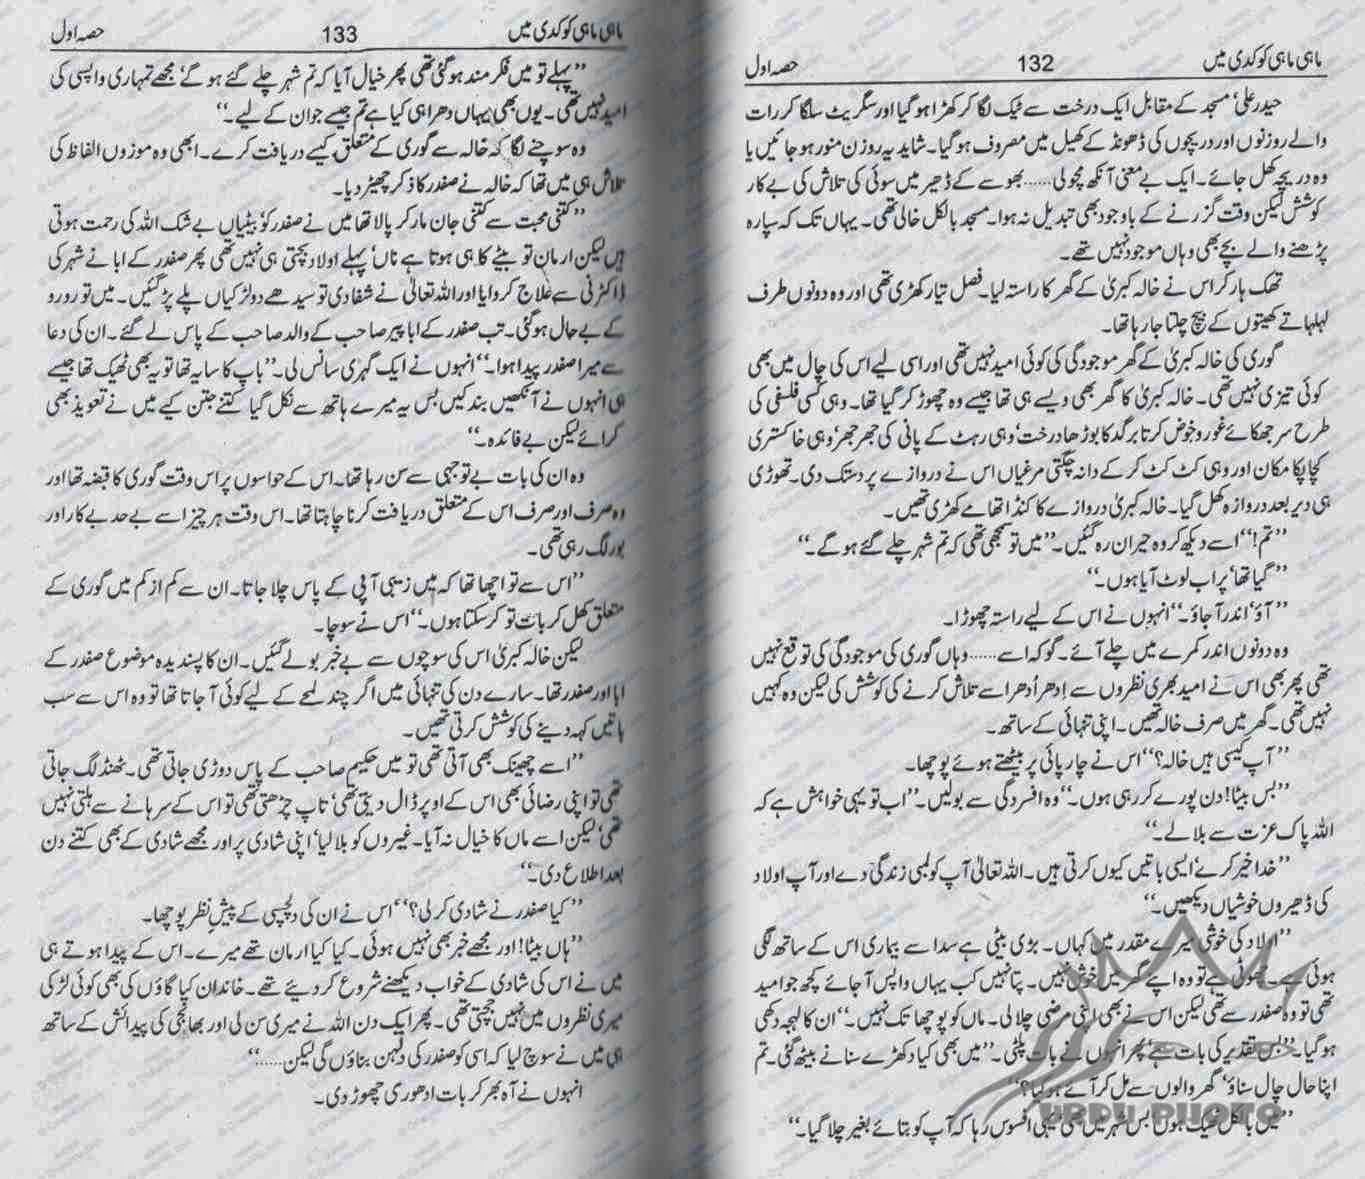 ماہی ماہی کوکدی میں 132 حصہ اول
حیدر علی، مسجد کے مقابل ایک درخت سے ٹیک لگا کر کھڑا ہو گیا اور سگریٹ سلگا کر رات
والے روزنوں اور دریچوں کی ڈھونڈ کے کھیل میں مصروف ہو گیا۔ شاید یہ روزن منور ہو جائیں یا
وہ دریچہ کھل جائے۔ ایک بے معنی آنکھ مچولی...... بھوسے کے ڈھیر میں سوئی کی تلاش کی بے کار
کوشش لیکن وقت گزرنے کے باوجود بھی تبدیل نہ ہوا۔ مسجد بالکل خالی تھی۔ یہاں تک کہ سپارہ
پڑھنے والے بچے بھی وہاں موجود نہیں تھے۔
تھک ہار کر اس نے خالہ کبریٰ کے گھر کا راستہ لیا۔ فصل تیار کھڑی تھی اور وہ دونوں طرف
لہلہاتے کھیتوں کے بیچ چلتا جا رہا تھا۔
گوری کی خالہ کبریٰ کے گھر موجودگی کی کوئی امید نہیں تھی اور اسی لیے اس کی چال میں بھی
کوئی تیزی نہیں تھی۔ خالہ کبریٰ کا گھر بھی ویسے ہی تھا جیسے وہ چھوڑ کر گیا تھا۔ وہی کسی فلسفی کی
طرح سر جھکائے غور و خوض کرتا برگد کا بوڑھا درخت، وہی رہٹ کے پانی کی جھر جھر، وہی خاکستری
کچا پکا مکان اور وہی کٹ کٹ کر کے دانہ چگتی مرغیاں اس نے دروازے پر دستک دی۔ تھوڑی
ہی دیر بعد دروازہ کھل گیا۔ خالہ کبریٰ دروازے کا کنڈا تھامے کھڑی تھیں۔
”تم!“ اسے دیکھ کر وہ حیران رہ گئیں۔ ”میں تو سمجھی تھی کہ تم شہر چلے گئے ہو گے۔“
”گیا تھا، پر اب لوٹ آیا ہوں۔“
”آؤ، اندر آ جاؤ۔“ انہوں نے اس کے لیے راستہ چھوڑا۔
وہ دونوں اندر کمرے میں چلے آئے۔ گو کہ اسے...... وہاں گوری کی موجودگی کی توقع نہیں
تھی پھر بھی اس نے امید بھری نظروں سے اِدھر اُدھر اسے تلاش کرنے کی کوشش کی لیکن وہ کہیں
نہیں تھی۔ گھر میں صرف خالہ تھیں۔ اپنی تنہائی کے ساتھ۔
”آپ کیسی ہیں خالہ؟“ اس نے چارپائی پر بیٹھتے ہوئے پوچھا۔
”بس بیٹا! دن پورے کر رہی ہوں۔“ وہ افسردگی سے بولیں۔ ”اب تو یہی خواہش ہے کہ
اللہ پاک عزت سے بلا لے۔“
”خدا خیر کرے، ایسی باتیں کیوں کرتی ہیں۔ اللہ تعالیٰ آپ کو لمبی زندگی دے اور آپ اولاد
کی ڈھیروں خوشیاں دیکھیں۔“
”اولاد کی خوشی میرے مقدر میں کہاں۔ بڑی بیٹی ہے سدا سے بیماری اس کے ساتھ لگی
ہوئی ہے۔ چھوٹی ہے تو وہ اپنے گھر میں خوش نہیں۔ پتا نہیں کب یہاں واپس آ جائے کچھ جو امید
تھی تو وہ صفدر سے تھی لیکن اس نے بھی اپنی مرضی چلا لی۔ ماں کو پوچھا تک نہیں۔“ ان کا لہجہ دکھی
ہو گیا۔ ”بس تقدیر کی بات ہے، پھر انہوں نے بات پلٹی۔ ”میں بھی کیا دکھڑے سنانے بیٹھ گئی۔ تم
اپنا حال چال سناؤ، گھر والوں سے مل کر آئے ہو کیا؟“
”میں بالکل ٹھیک ہوں بس شہر میں بھی یہی افسوس رہا کہ آپ کو بتائے بغیر چلا گیا۔“
URDU PHOTO
ماہی ماہی کوکدی میں 133 حصہ اول
”پہلے تو میں فکر مند ہو گئی تھی پھر خیال آیا کہ تم شہر چلے گئے ہو گے، مجھے تمہاری واپسی کی
امید نہیں تھی۔ یوں بھی یہاں دھرا ہی کیا ہے تم جیسے جوان کے لیے۔“
وہ سوچنے لگا کہ خالہ سے گوری کے متعلق کیسے دریافت کرے۔ ابھی وہ موزوں الفاظ کی
تلاش ہی میں تھا کہ خالہ نے صفدر کا ذکر چھیڑ دیا۔
”کتنی محبت سے کتنی جان مار کر پالا تھا میں نے صفدر کو، بیٹیاں بے شک اللہ کی رحمت ہوتی
ہیں لیکن ارمان تو بیٹے کا ہی ہوتا ہے ناں، پہلے اولاد بچتی ہی نہیں تھی پھر صفدر کے ابا نے شہر کی
ڈاکٹرنی سے علاج کروایا اور اللہ تعالیٰ نے شفا دی تو سیدھے دو لڑکیاں پلے پڑ گئیں۔ میں تو رو رو
کے بے حال ہو گئی۔ تب صفدر کے ابا پیر صاحب کے والد صاحب کے پاس لے گئے۔ ان کی دعا
سے میرا صفدر پیدا ہوا۔“ انہوں نے ایک گہری سانس لی۔ ”باپ کا سایہ تھا تو یہ بھی ٹھیک تھا جیسے
ہی انہوں نے آنکھیں بند کیں بس یہ میرے ہاتھ سے نکل گیا کتنے جتن کیے میں نے تعویذ بھی
کرائے لیکن بے فائدہ۔“
وہ ان کی بات بے توجہی سے سن رہا تھا۔ اس کے حواسوں پر اس وقت گوری کا قبضہ تھا اور
وہ صرف اور صرف اس کے متعلق دریافت کرنا چاہتا تھا۔ اس وقت ہر چیز اسے بے حد بے کار اور
بور لگ رہی تھی۔
”اس سے تو اچھا تھا کہ میں زیبی آپی کے پاس چلا جاتا۔ ان سے کم از کم میں گوری کے
متعلق کھل کر بات تو کر سکتا ہوں۔“ اس نے سوچا۔
لیکن خالہ کبریٰ اس کی سوچوں سے بے خبر بولے گئیں۔ ان کا پسندیدہ موضوع صفدر کے
ابا اور صفدر تھا۔ سارے دن کی تنہائی میں اگر چند لمحے کے لیے کوئی آ جاتا تھا تو وہ اس سے سب
باتیں کہہ دینے کی کوشش کرتی تھیں۔
”اسے چھینک بھی آتی تھی تو میں حکیم صاحب کے پاس دوڑی جاتی تھی۔ ٹھنڈ لگ جاتی
تھی تو اپنی رضائی بھی اس کے اوپر ڈال دیتی تھی، تاپ چڑھتی تھی تو اس کے سرہانے سے ہلتی نہیں
تھی، لیکن اسے ماں کا خیال نہ آیا۔ غیروں کو بلا لیا، اپنی شادی پر اور مجھے شادی کے بھی کتنے دن
بعد اطلاع دی۔“
”کیا صفدر نے شادی کر لی؟“ اس نے ان کی دلچسپی کے پیشِ نظر پوچھا۔
”ہاں بیٹا! اور مجھے خبر بھی نہیں ہوئی۔ کیا کیا ارمان تھے میرے۔ اس کے پیدا ہوتے ہی
میں نے اس کی شادی کے خواب دیکھنے شروع کر دیئے تھے۔ خاندان کیا گاؤں کی بھی کوئی لڑکی
میری نظروں میں نہیں جچتی تھی۔ پھر ایک دن اللہ نے میری سن لی اور بھانجی کی پیدائش کے ساتھ
ہی میں نے سوچ لیا کہ اسی کو صفدر کی دلہن بناؤں گی لیکن......“
انہوں نے آہ بھر کر بات ادھوری چھوڑ دی۔